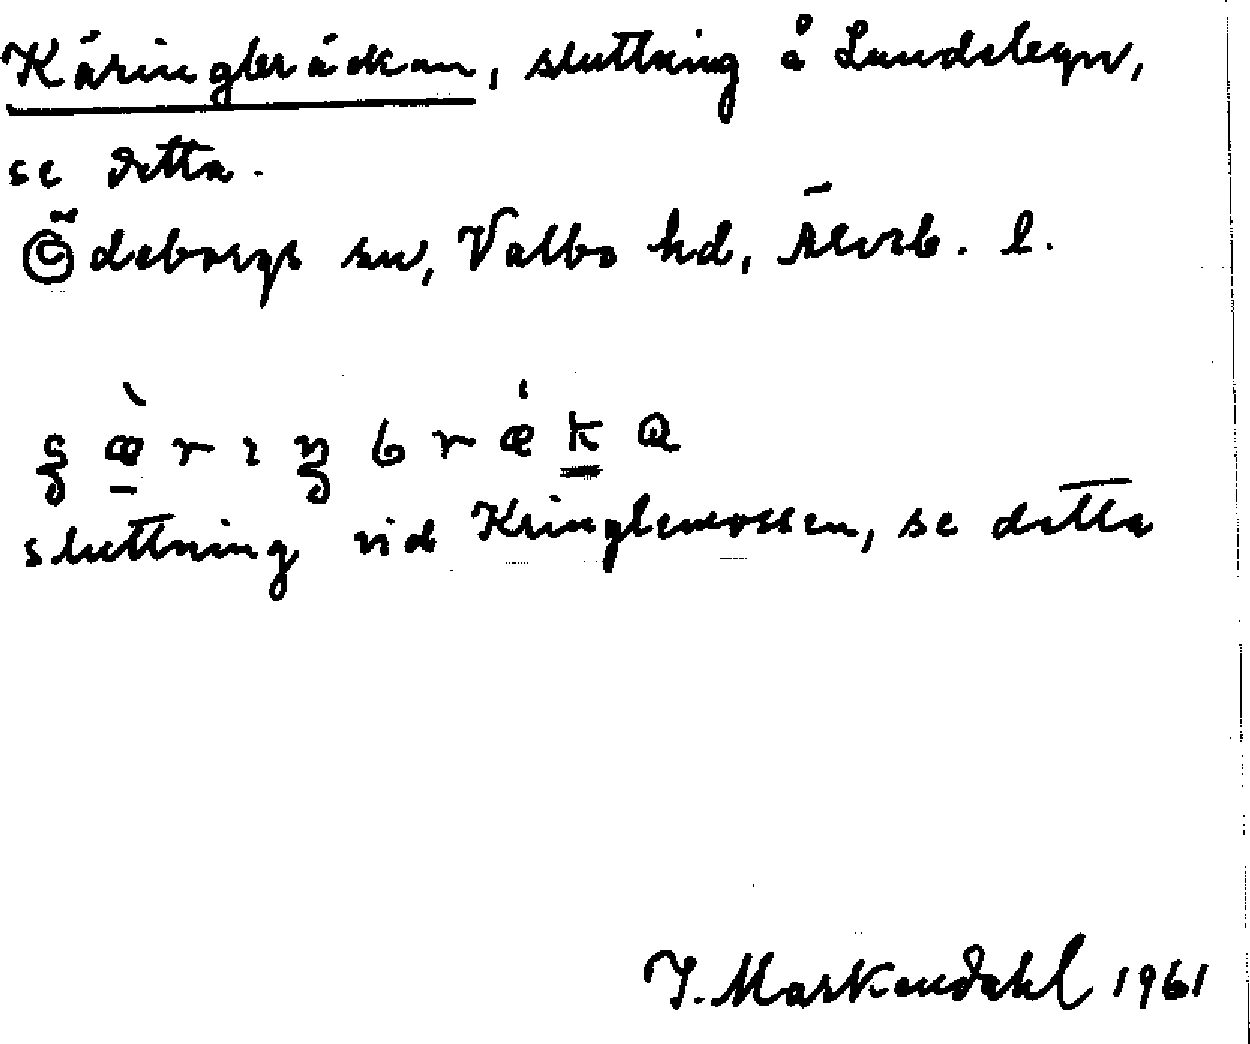 Käringbräckan, sluttning å Lundslegn,
se detta.
Ödeborgs sn, Valbo hd, Älvsb. l.
sluttning vid Kringlemossen, se detta
J. Markendahl 1961